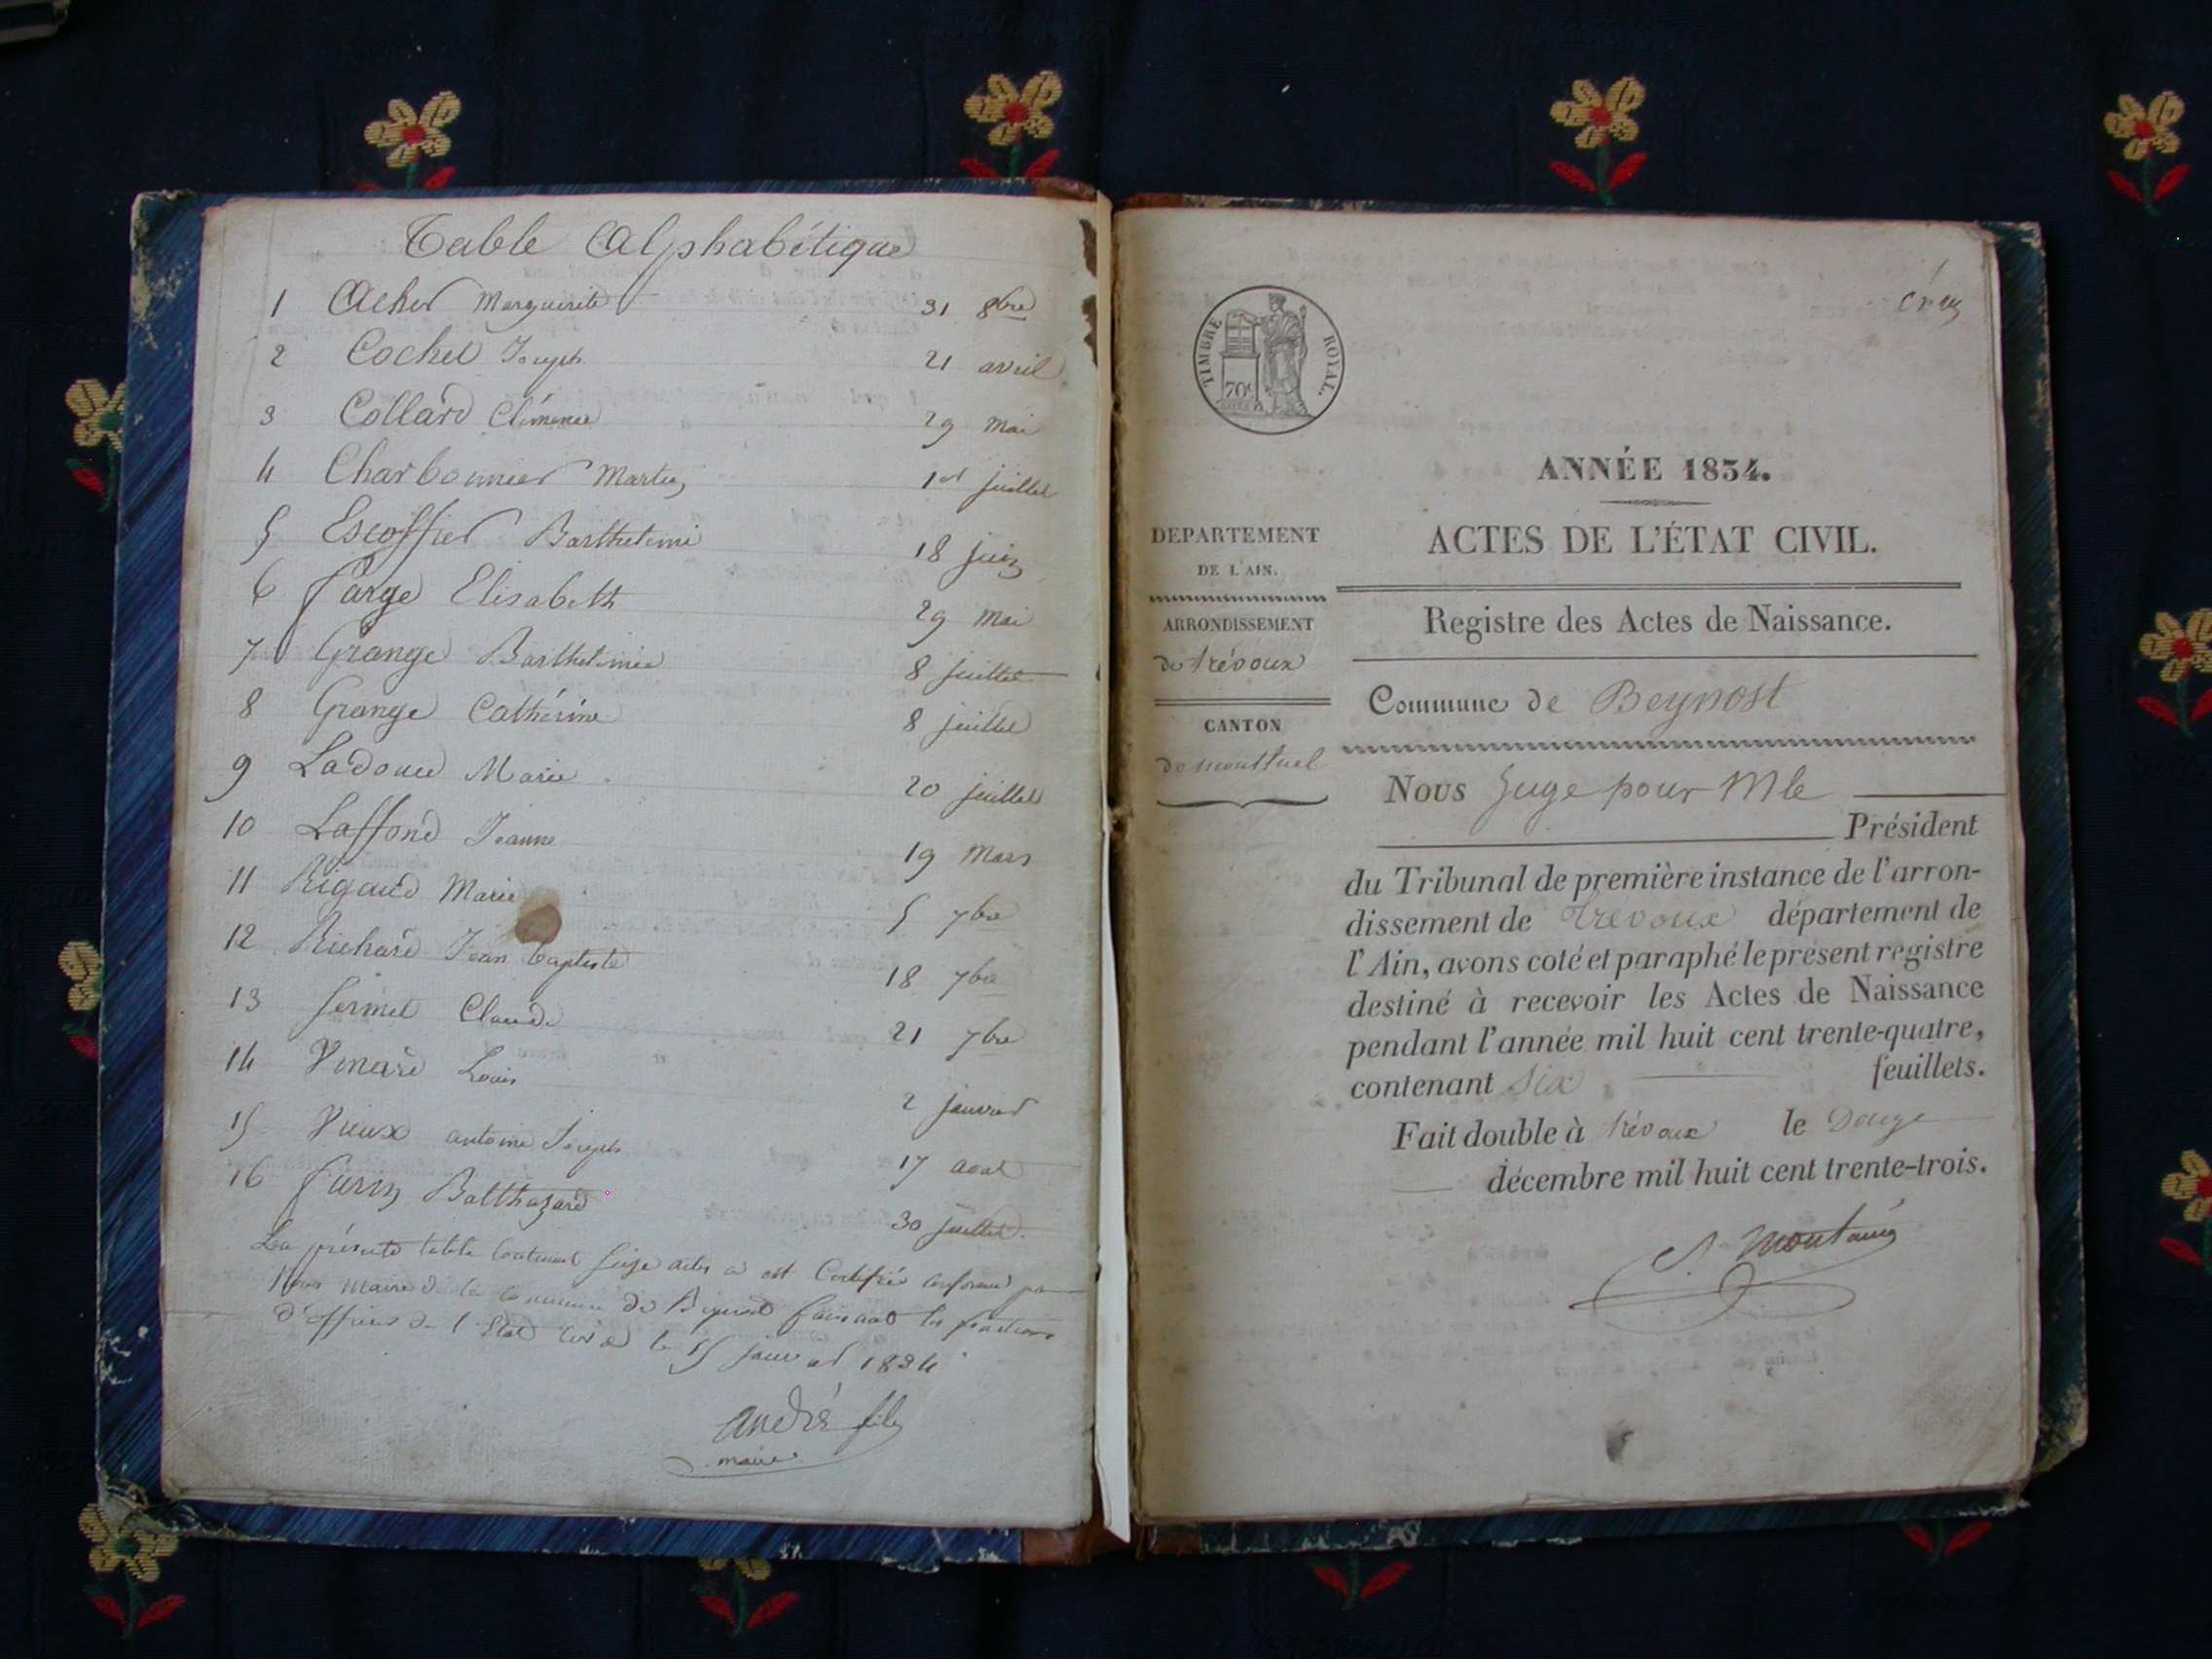 Table Alphabétique
1 Acher Marguerite 31 8bre
2 Cochet Joseph 21 avril
3 Collard Clémence 29 mai
4 Charbonnier Martin 1er juillet
5 Escoffier Barthelemi 18 juin
6 Farge Elisabeth 29 mai
7 Grange Barthelemie 8 juillet
8 Grange Catherine 8 juillet
9 Ladouce Marie 20 juillet
10 Laffond Jeanne 19 mars
11 Rigaud Marie 5 7bre
12 Richard Jean baptiste 18 7bre
13 Sermet Claude 21 7bre
14 Vinard Louis 2 janvier
15 Vieux antoine Joseph 17 aout
16 Balthazard 30 juillet
La présente table contenant seize actes a été Certifiée conforme par
Nous maire de la Commune de Beynost faisant les fonctions
d'officier de l'état civil le 15 janvier 1834
André fils
maire
TIMBRE ROYAL.
70c
ANNÉE 1834.
ACTES DE L'ÉTAT CIVIL.
DEPARTEMENT
DE L'AIN.
ARRONDISSEMENT
de Trévoux
CANTON
de montluel
Registre des Actes de Naissance.
Commune de Beynost
Nous Juge pour Mle
Président
du Tribunal de première instance de l'arron-
dissement de Trevoux département de
l'Ain, avons coté et paraphé le présent registre
destiné à recevoir les Actes de Naissance
pendant l'année mil huit cent trente-quatre,
contenant Six feuillets.
Fait double à Trévoux le Douze
décembre mil huit cent trente-trois.